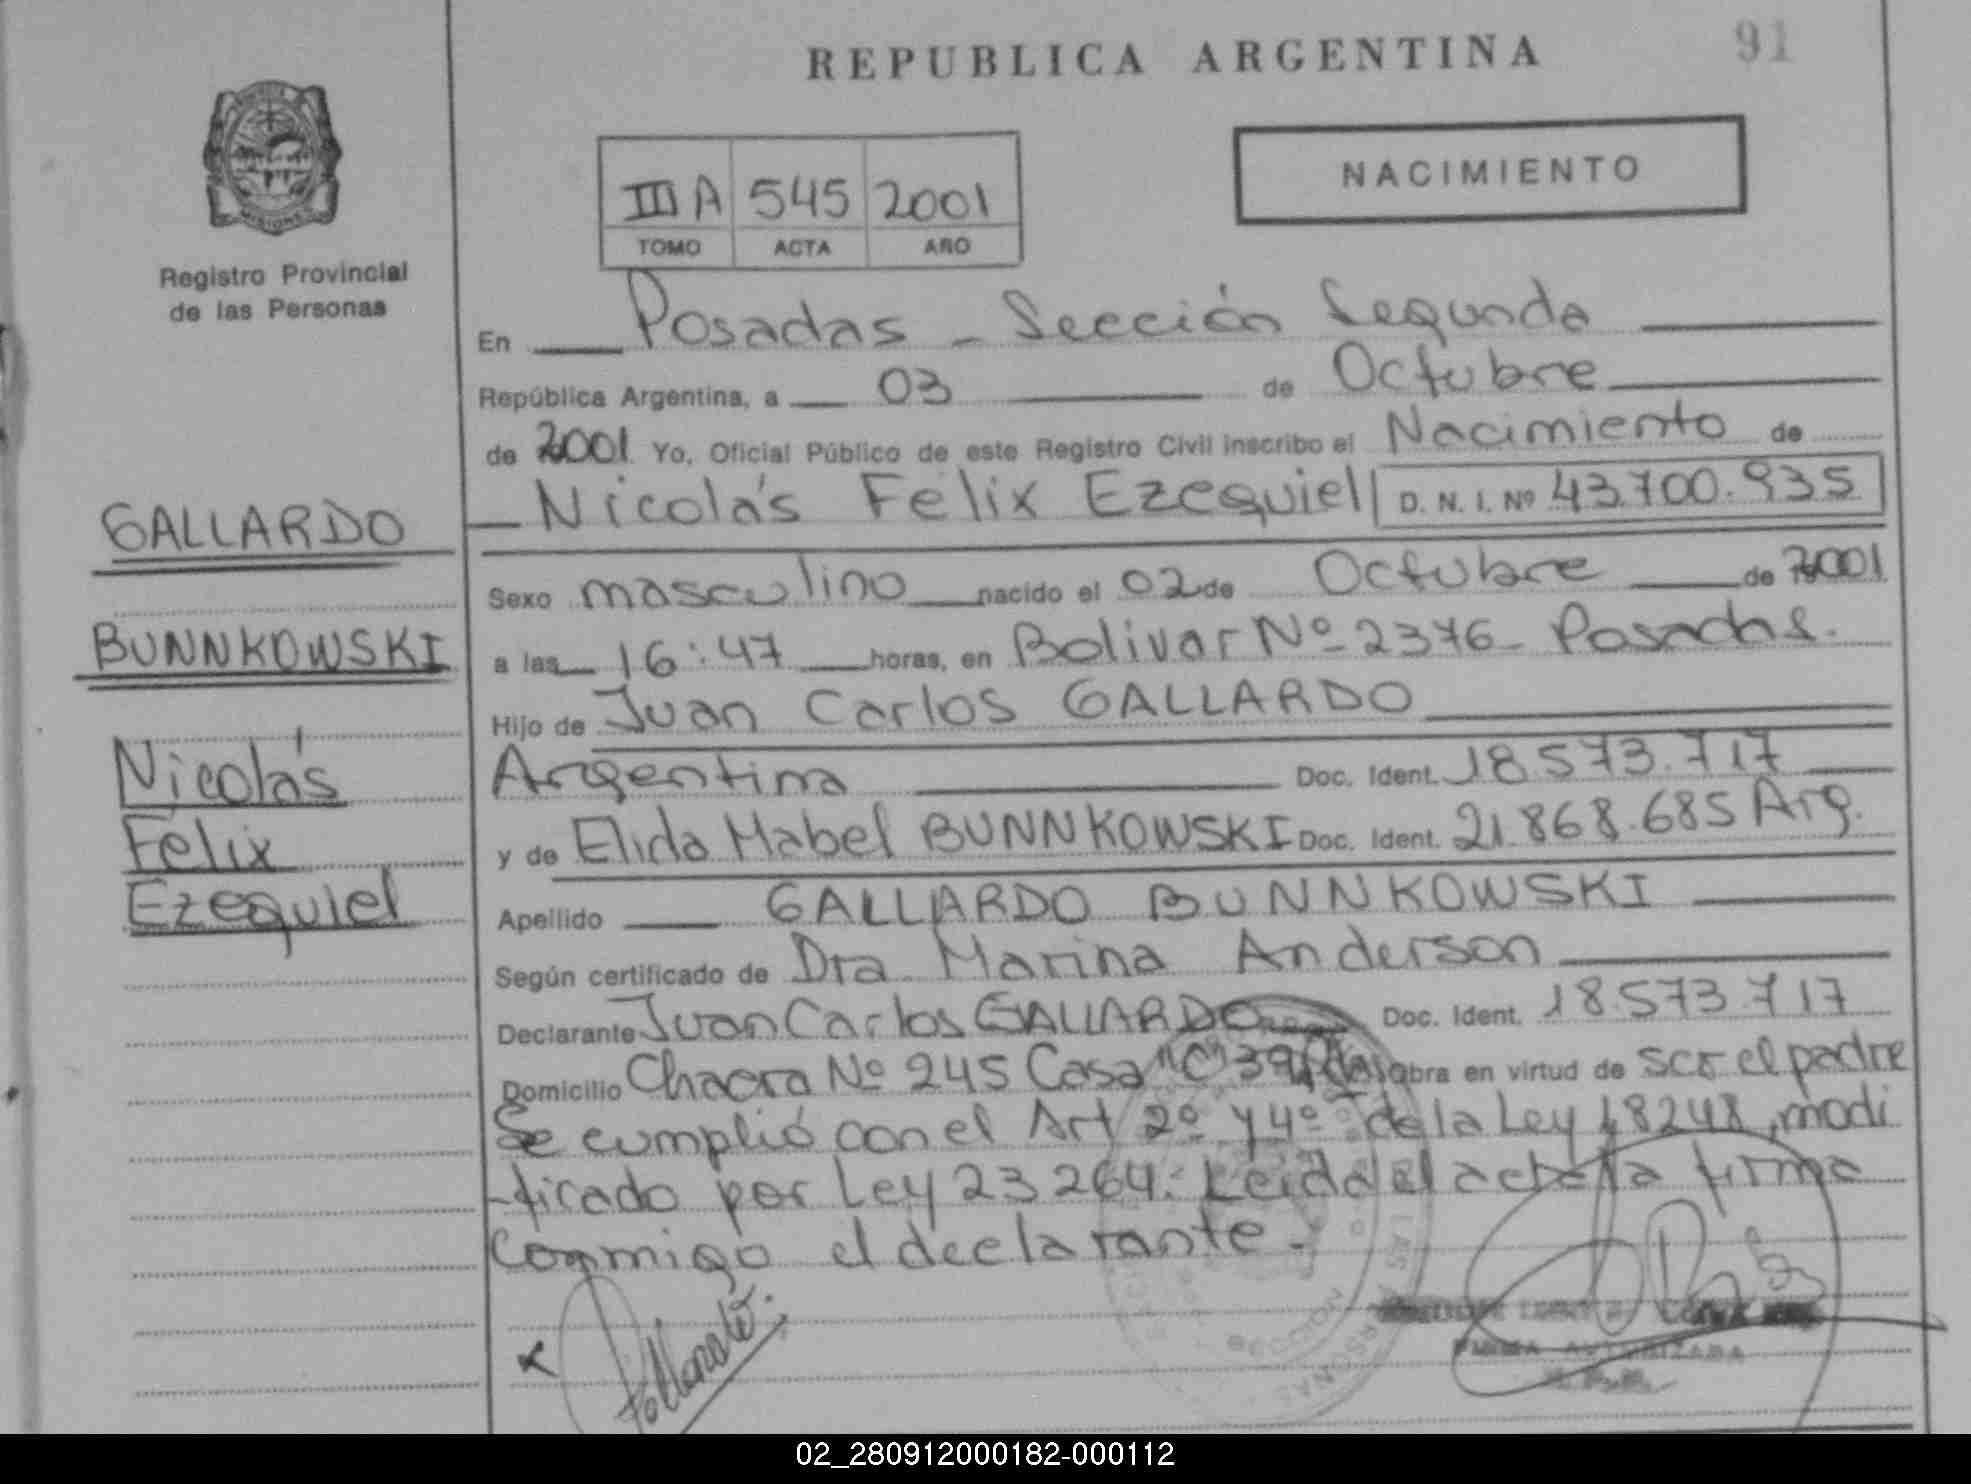 REPUBLICA ARGENTINA
91
NACIMIENTO
III A 545 2001
TOMO ACTA AÑO
MISIONES
Registro Provincial
de las Personas
GALLARDO
BUNNKOWSKI
Nicolás
Félix
Ezequiel
En Posadas - Sección Segunda
República Argentina, a 03 de Octubre
de 2001 Yo, Oficial Público de este Registro Civil inscribo el Nacimiento de
Nicolás Félix Ezequiel D. N. I. Nº 43.700.935
Sexo masculino nacido el 02 de Octubre de 2001
a las 16:47 horas, en Bolivar Nº 2376 - Posadas.
Hijo de Juan Carlos GALLARDO
Argentina Doc. Ident. 18.573.717
y de Elida Mabel BUNNKOWSKI Doc. Ident. 21.868.685 Arg.
Apellido GALLARDO BUNNKOWSKI
Según certificado de Dra Marina Anderson
Declarante Juan Carlos GALLARDO Doc. Ident. 18.573.717
Domicilio Chacra Nº 245 Casa "C" 39 obra en virtud de ser el padre
Se cumplió con el Art 2º y 4º de la Ley 18248, modi
-ficado por Ley 23264. Leida el acta la firma
conmigo el declarante.-
FIRMA AUTORIZADA
02_280912000182-000112